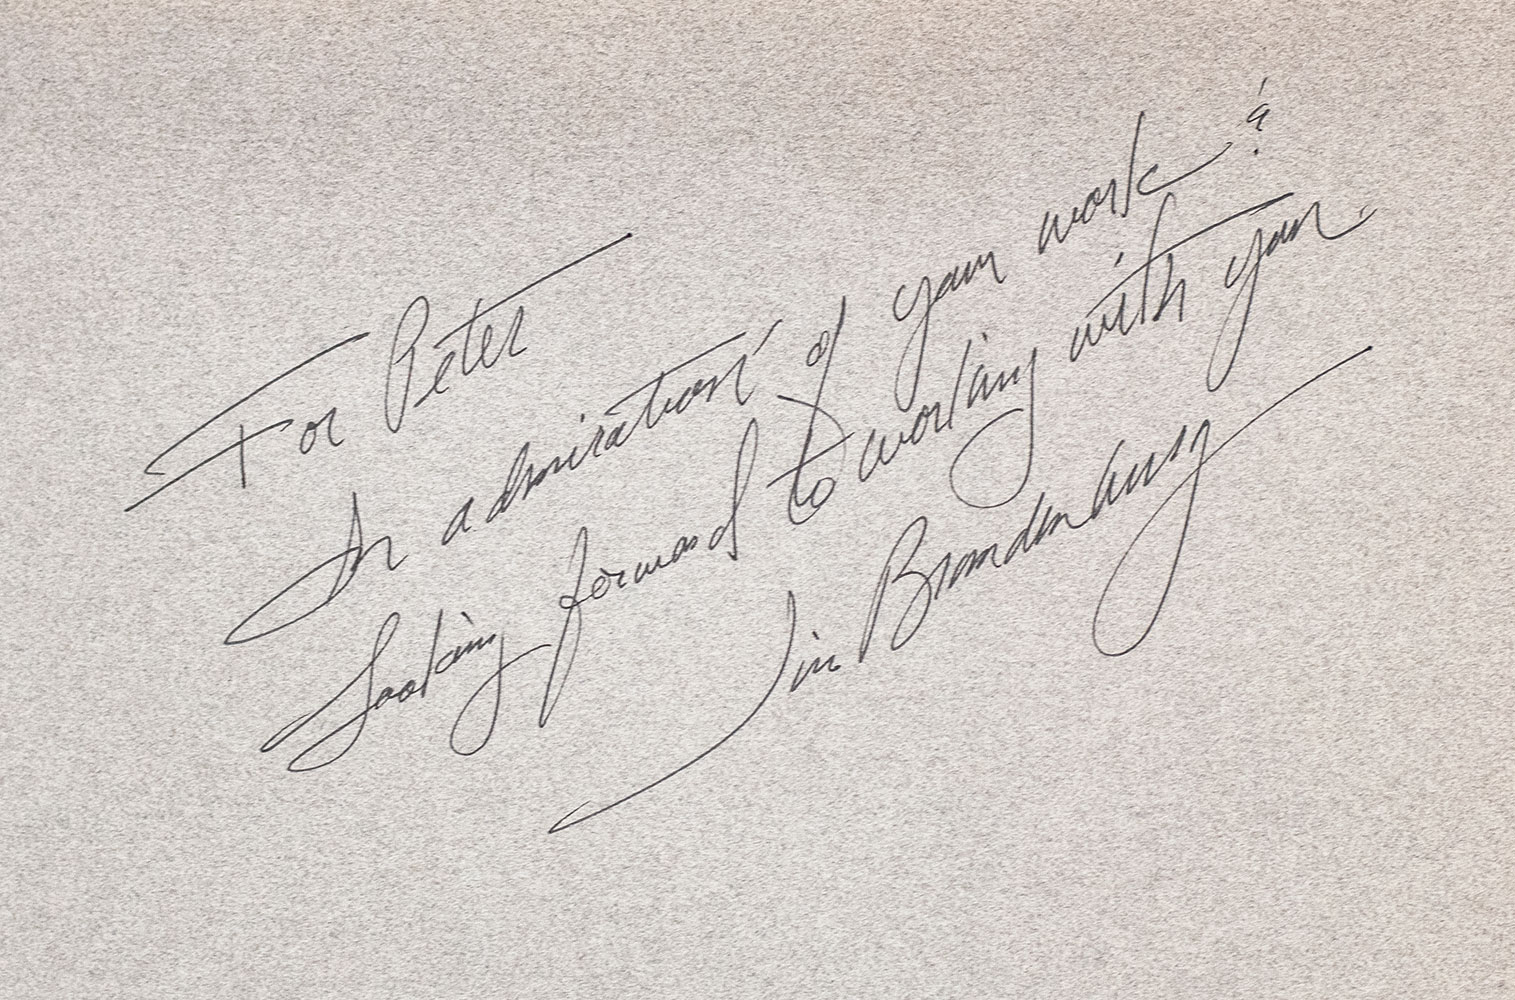 For Peter
In admiration of your work &
Looking forward to working with you.
Jim Brandenburg